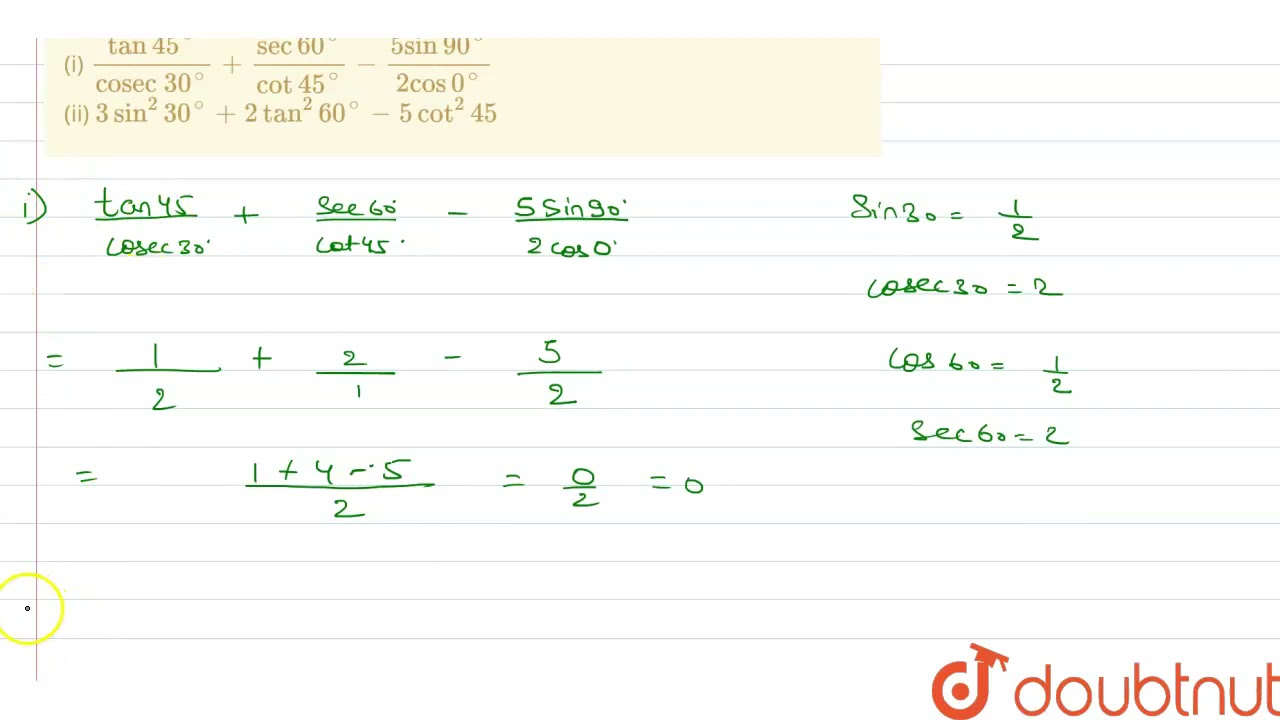 (i) tan 45° / cosec 30° + sec 60° / cot 45° − 5sin 90° / 2cos 0°
(ii) 3 sin² 30° + 2 tan² 60° − 5 cot² 45
i) tan 45 / cosec 30° + sec 60° / cot 45° − 5 sin 90° / 2 cos 0°
sin 30 = 1/2
cosec 30 = 2
= 1/2 + 2/1 − 5/2
cos 60 = 1/2
sec 60 = 2
= 1 + 4 − 5 / 2 = 0/2 = 0
doubtnut